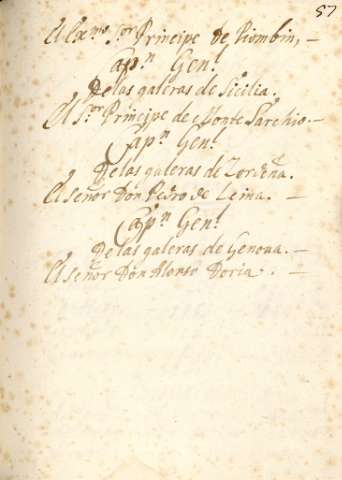 57
El Exmo. Sor Principe de Piombin,
Capn Genl
De las galeras de Sicilia.
El Sor Principe de Monte Sarchio.
Capn Genl
De las galeras de Zerdeña.
El señor Don Pedro de Leiua.
Capn Genl
De las galeras de Genoua.
El señor Don Alonso Doria.